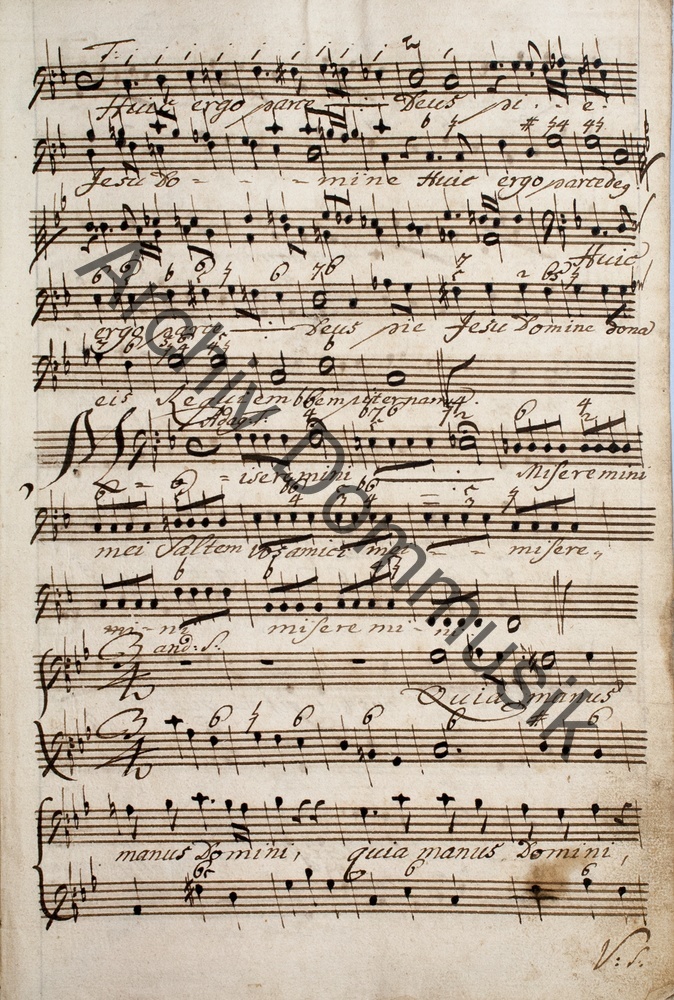 T:
Huic ergo parce Deus pi - e
Jesu Do - - - mine Huic ergo parce de9
Huic
ergo parce Deus pie Jesu Domine dona
eis Requiem sempiternam.
Adag:
M - - iseremini Miseremini
mei Saltem vos amici mei - - misere-
mi - ni miseremi - ni
and: S:
Quia manus
manus Domini, quia manus Domini,
V: s:
Archiv Dommusik